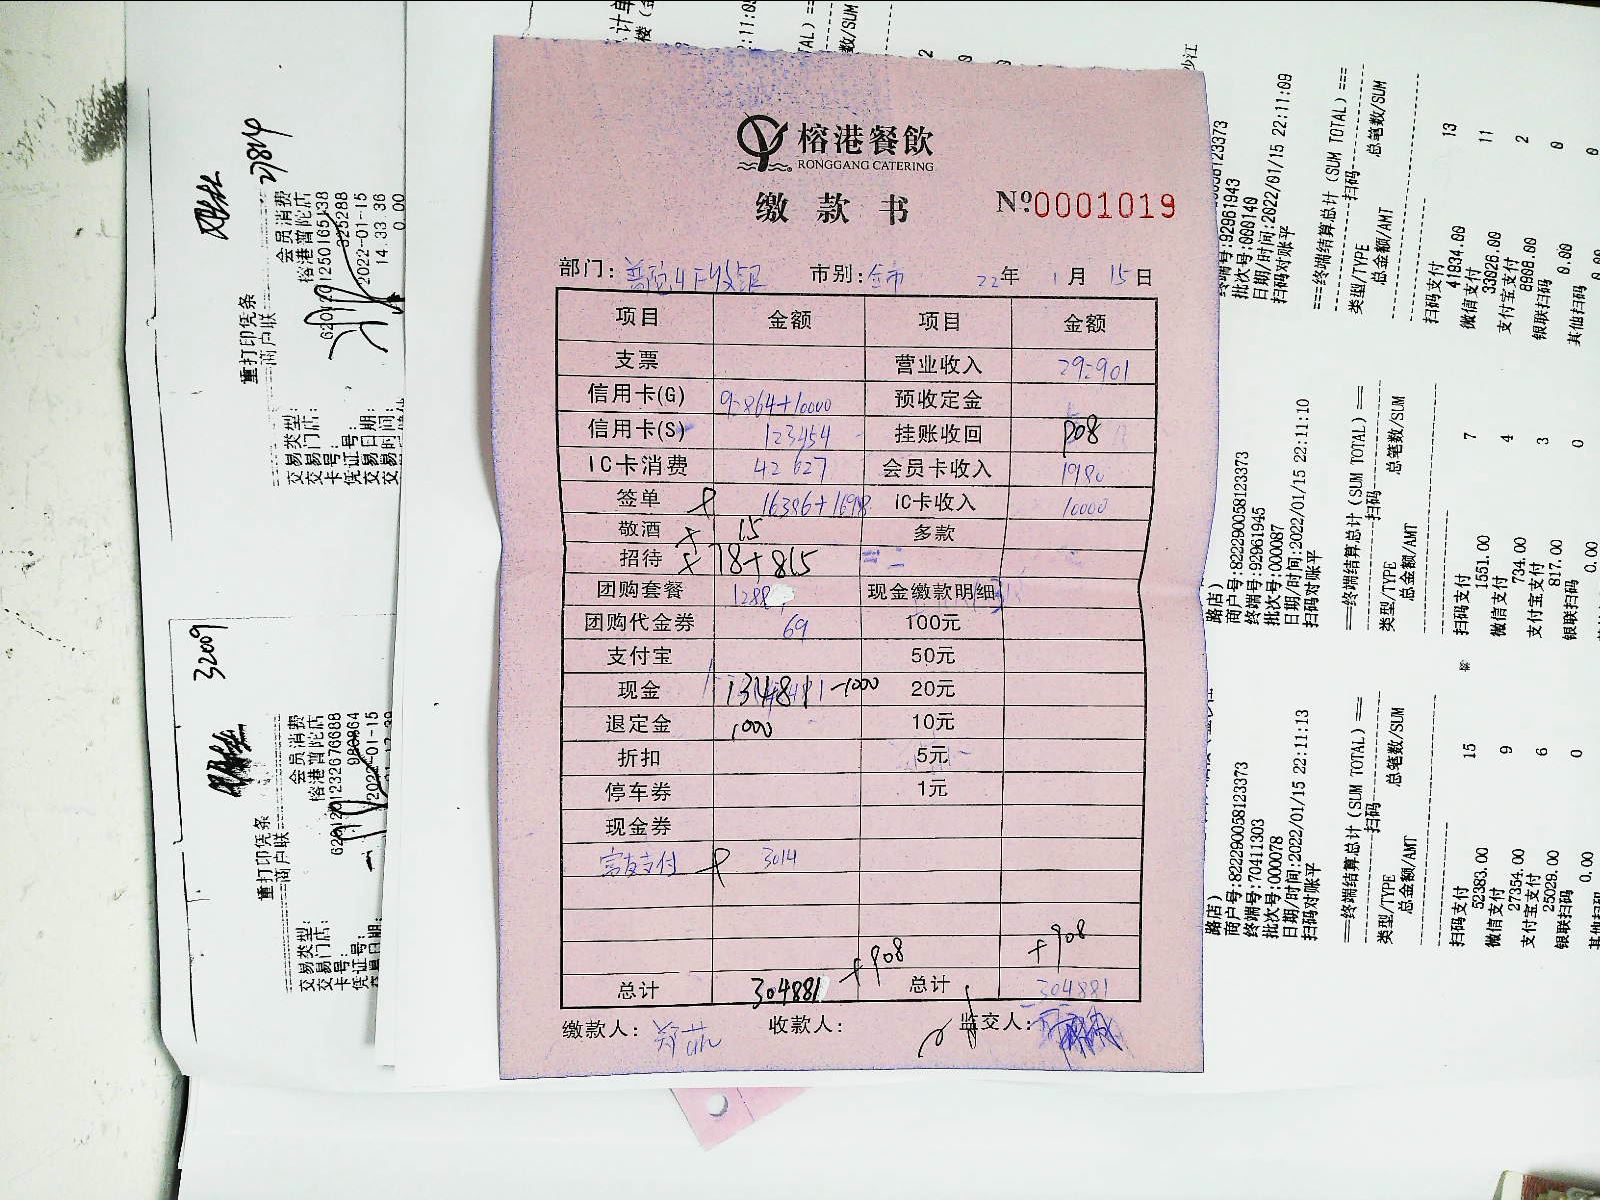 榕港餐飲
RONGGANG CATERING
缴款书 №0001019
部门: 市别: 22年 1月 15日
项目 金额 项目 金额
支票 营业收入 292901
信用卡(G) 92864+10000 预收定金
信用卡(S) 123454 挂账收回 908
IC卡消费 42627 会员卡收入 1980
签单 16386+1698 IC卡收入 10000
敬酒 15 多款
招待 78+815
团购套餐 1288 现金缴款明细
团购代金券 69 100元
支付宝 50元
现金 -1000 20元
退定金 1000 10元
折扣 5元
停车券 1元
现金券
富友支付 3014
+908 +908
总计 304881 总计 304881
缴款人: 收款人: 监交人:
27814
重打印凭条
商户联
交易类型: 会员消费
交易门店: 榕港普陀店
卡号:
凭证号: 325288
交易日期: 2022-01-15
交易时间: 14 33 36
0.00
32009
重打印凭条
商户联
交易类型: 会员消费
交易门店: 榕港普陀店
卡号:
凭证号:
交易日期: 2022-01-15
终端号:92961943
批次号:000140
日期/时间:2022/01/15 22:11:09
扫码对账平
===终端结算总计(SUM TOTAL)===
扫码
类型/TYPE 总笔数/SUM
总金额/AMT
扫码支付 13
41834.00
微信支付 11
33026.00
支付宝支付 2
8808.00
银联扫码 0
0.00
其他扫码 0
0.00
路店)
商户号:822290058123373
终端号:92961945
批次号:000087
日期/时间:2022/01/15 22:11:10
扫码对账平
===终端结算总计(SUM TOTAL)===
扫码
类型/TYPE 总笔数/SUM
总金额/AMT
扫码支付 7
1551.00
微信支付 4
734.00
支付宝支付 3
817.00
银联扫码 0
0.00
路店)
商户号:822290058123373
终端号:70411303
批次号:000078
日期/时间:2022/01/15 22:11:13
扫码对账平
===终端结算总计(SUM TOTAL)===
扫码
类型/TYPE 总笔数/SUM
总金额/AMT
扫码支付 15
52383.00
微信支付 9
27354.00
支付宝支付 6
25029.00
银联扫码 0
0.00